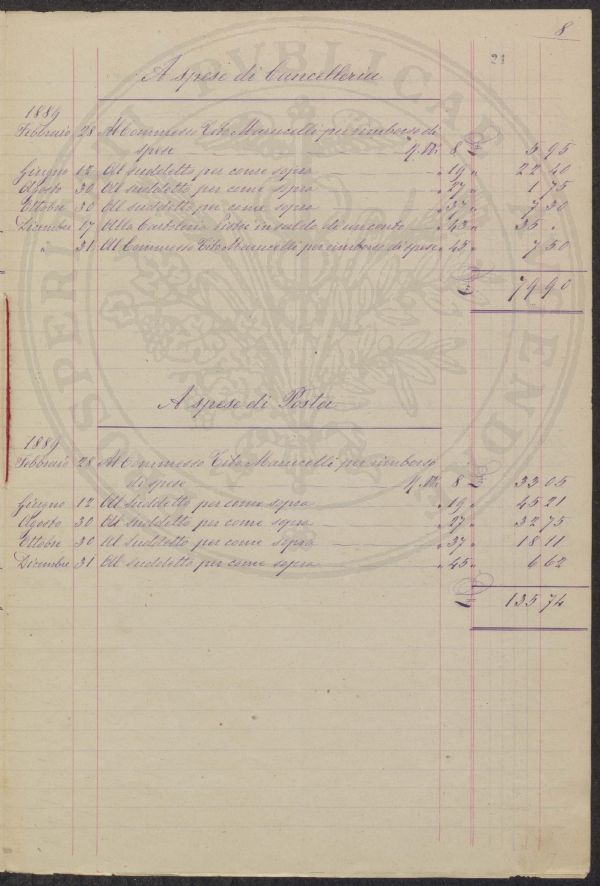 8
21
A spese di Cancelleria
1889
Febbraio 28 Al Commesso Tito Marucelli per rimborso di
spese — M.ti 8 5 95
Giugno 12 Al suddetto per come sopra — " 19 " 22 40
Agosto 30 Al suddetto per come sopra — " 27 " 1 75
Ottobre 30 Al suddetto per come sopra — " 37 " 7 30
Dicembre 17 Alla Cartoleria in saldo di un conto — " 43 " 35 "
" 31 Al Commesso Tito Marucelli per rimborso di spese " 45 " 7 50
79 90
A spese di Posta
1889
Febbraio 28 Al Commesso Tito Marucelli per rimborso
di spese — M.ti 8 33 05
Giugno 12 Al suddetto per come sopra — " 19 " 45 21
Agosto 30 Al suddetto per come sopra — " 27 " 32 75
Ottobre 30 Al suddetto per come sopra — " 37 " 18 11
Dicembre 31 Al suddetto per come sopra — " 45 " 6 62
135 74
PVBLICAE